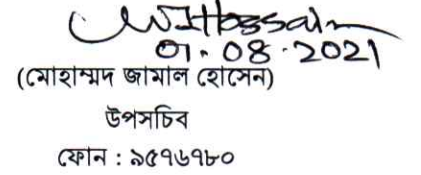 01-08-2021
(মোহাম্মদ জামাল হোসেন)
উপসচিব
ফোন : ৯৫৭৬৭৮০